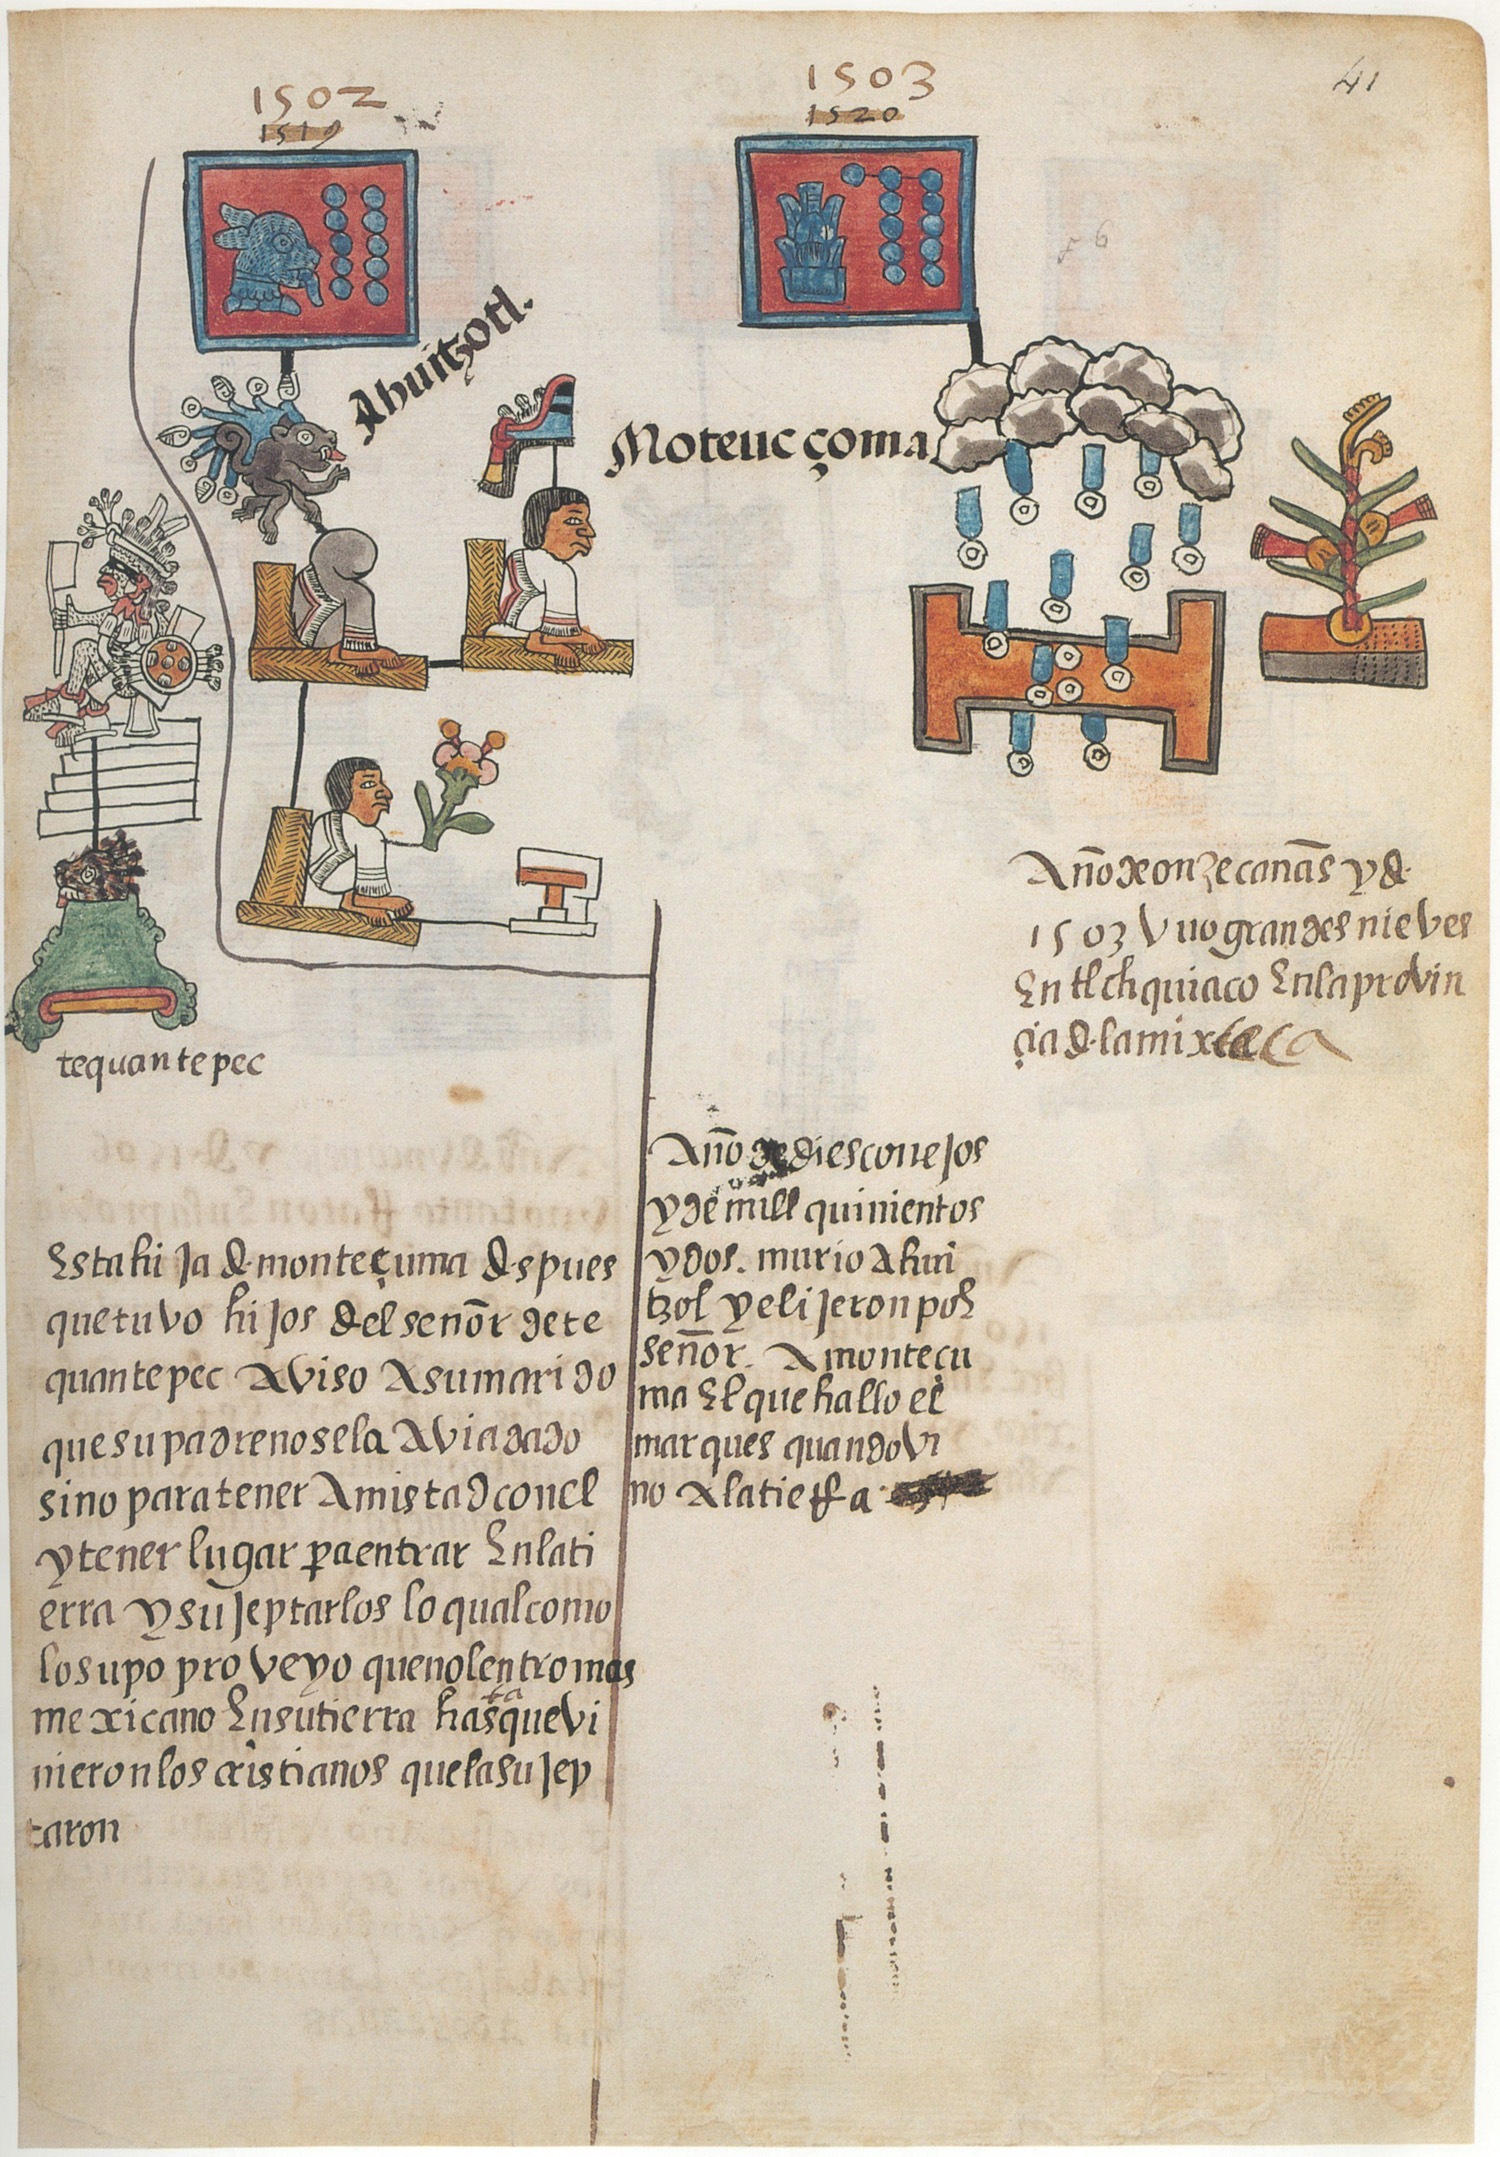 41
1502
1519
1503
1520
Ahuitzotl.
Moteucçoma
tequantepec
Año de onze cañas y d.
1503 Vuo grandes nieves
En tlchquiaco En la provin
çia d. la mixteca
Año de dies conejos
y de mill quinientos
y dos. murio Ahui
tzol y elijeron por
señor. A monteçu
ma El que hallo el
marques quando vi
no A la tierra
Esta hija d. monteçuma despues
que tuvo hijos del señor de te
quantepec Aviso A su marido
que su padre no se la Avia dado
sino para tener Amistad con el
y tener lugar pa entrar En la ti
erra y sujeptarlos lo qual como
lo supo proveyo que no lentro mas
mexicano En su tierra hasta que vi
nieron los cristianos que la sujep
taron